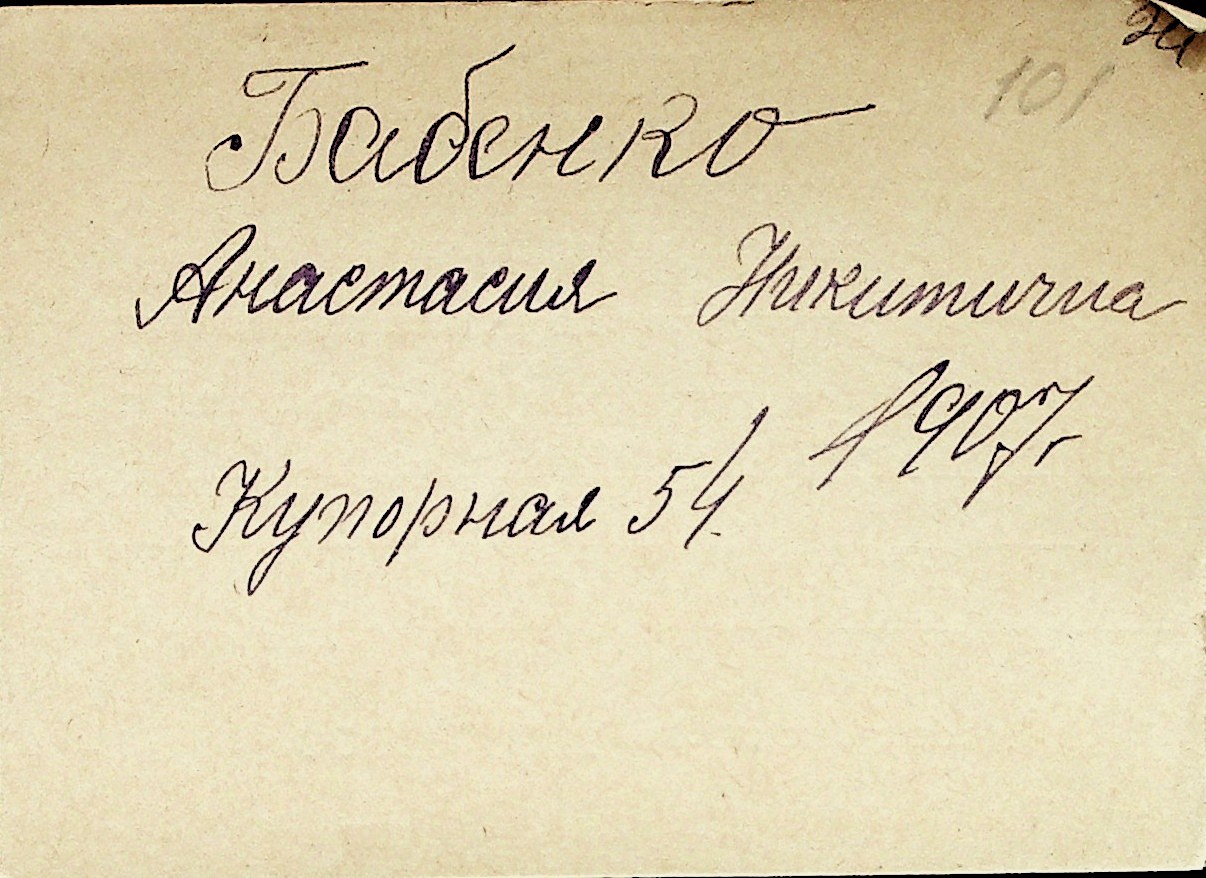 101
Бабенко
Анастасия Никитична
1907г
Купорная 54.